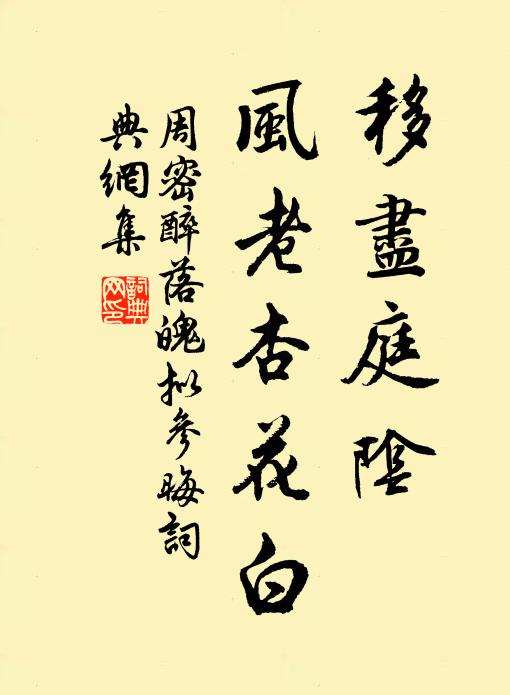 移盡庭陰
風老杏花白
周密醉落魄拟參晦詞
典網集
詞典
网印